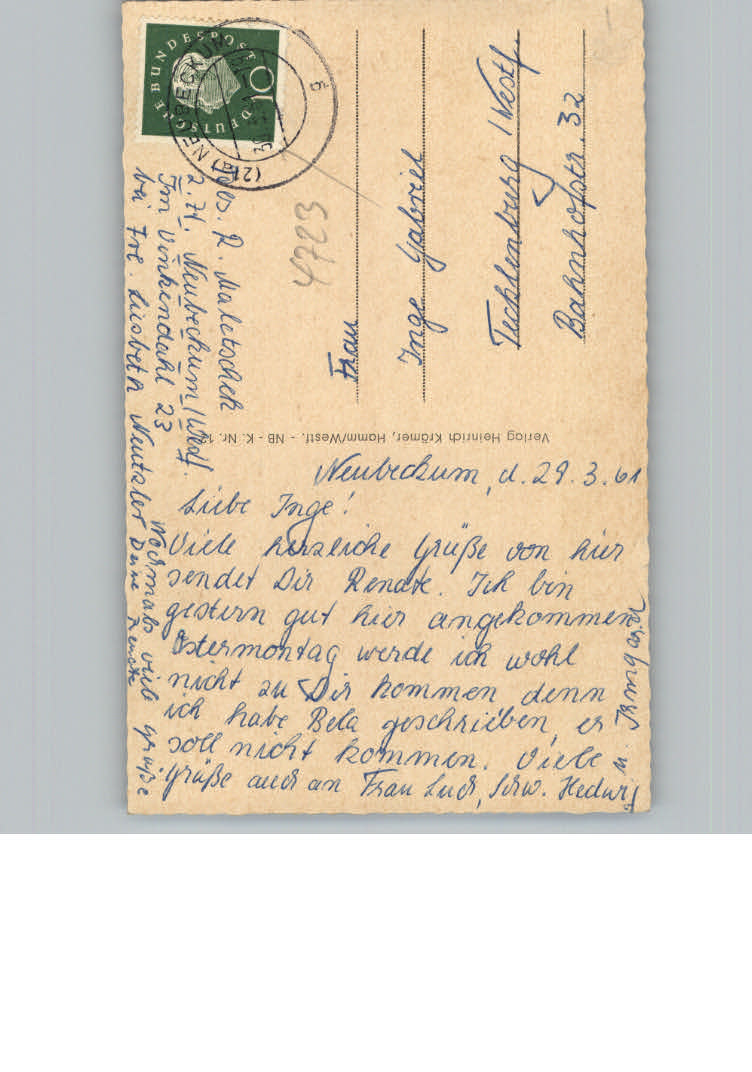 DEUTSCHE BUNDESPOST
10
(21a) NEUBECKUM
Abs. R. Maletschek
z. Zt. Neubeckum/Westf.
Im Vinkendahl 23
bei Fre. Liesbeth Neutzler
4723
Frau
Inge Gabriel
Tecklenburg /Westf
Bahnhofstr. 32
Verlag Heinrich Krämer, Hamm/Westf. - NB - K. Nr.
Neubeckum, d. 29.3.61
Liebe Inge!
Viele herzliche Grüße von hier
sendet Dir Renate. Ich bin
gestern gut hier angekommen
Ostermontag werde ich wohl
nicht zu Dir kommen denn
ich habe Bela geschrieben, er
soll nicht kommen. Viele
Grüße auch an Frau Luch, Schw. Hedwig
u. Irmgard
Nochmals viele Grüße
Deine Renate